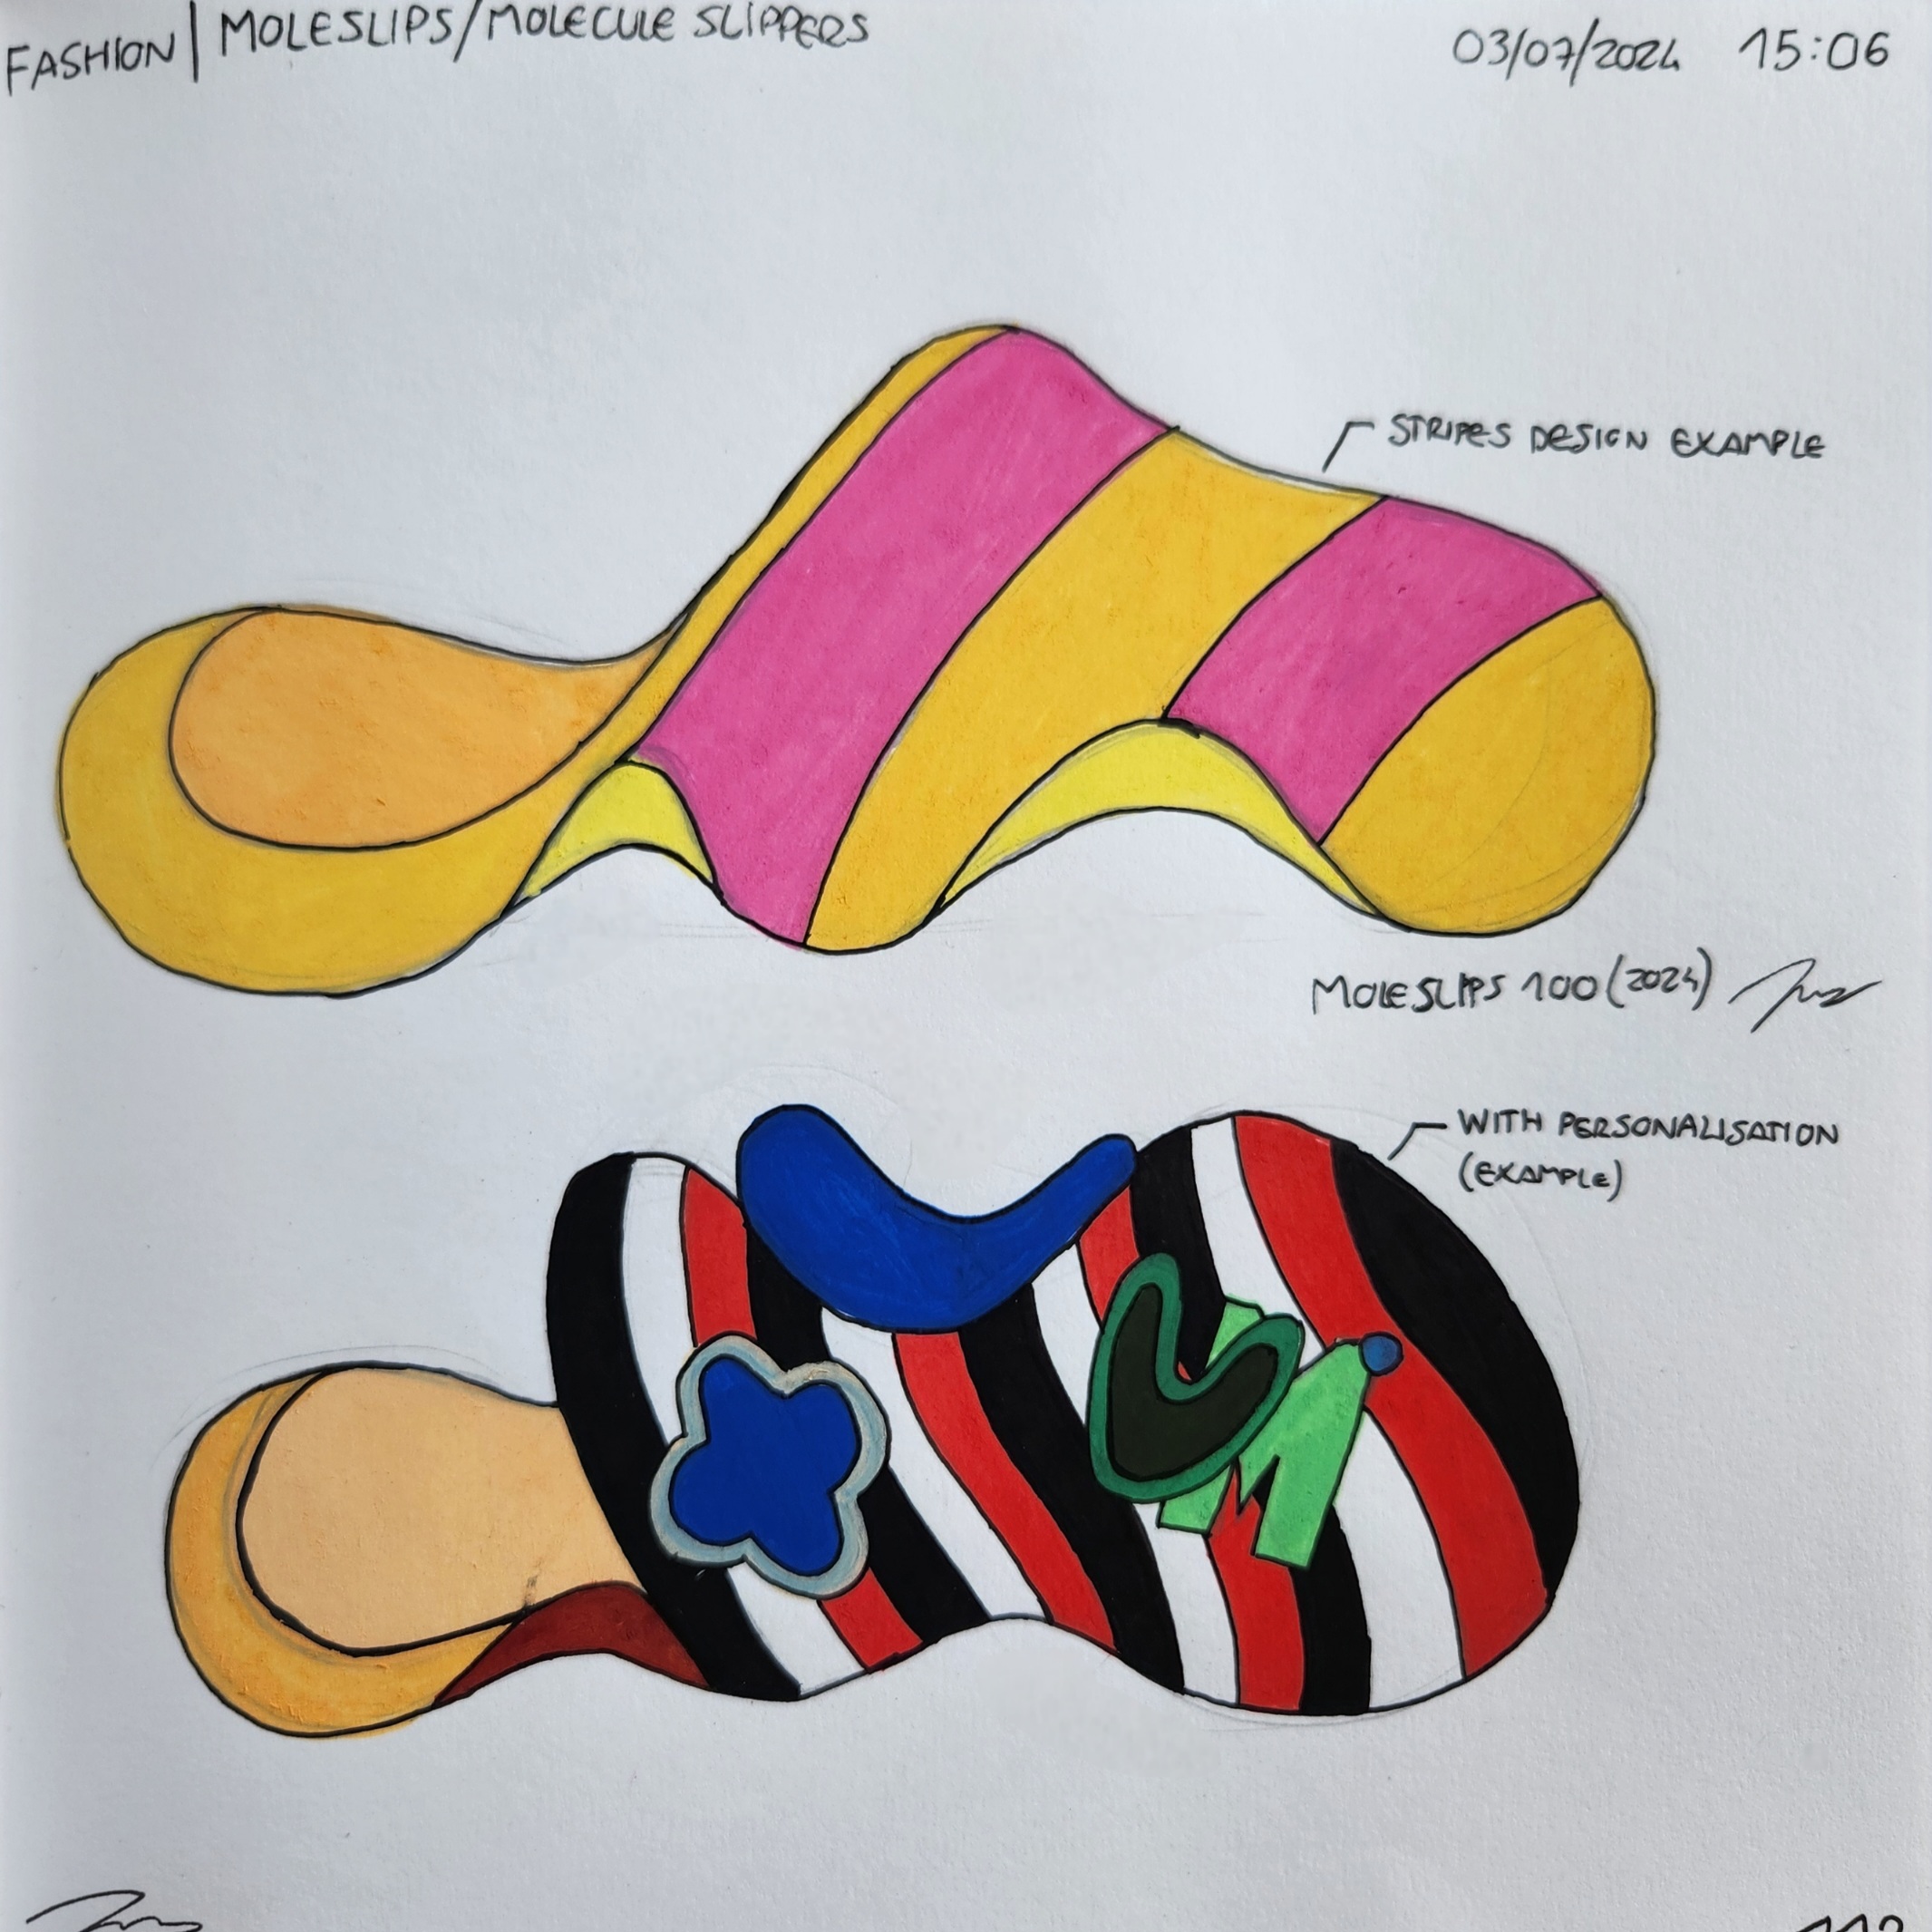 FASHION | MOLESLIPS/MOLECULE SLIPPERS
03/07/2024 15:06
STRIPES DESIGN EXAMPLE
MOLESLIPS 100 (2024)
WITH PERSONALISATION
(EXAMPLE)
M